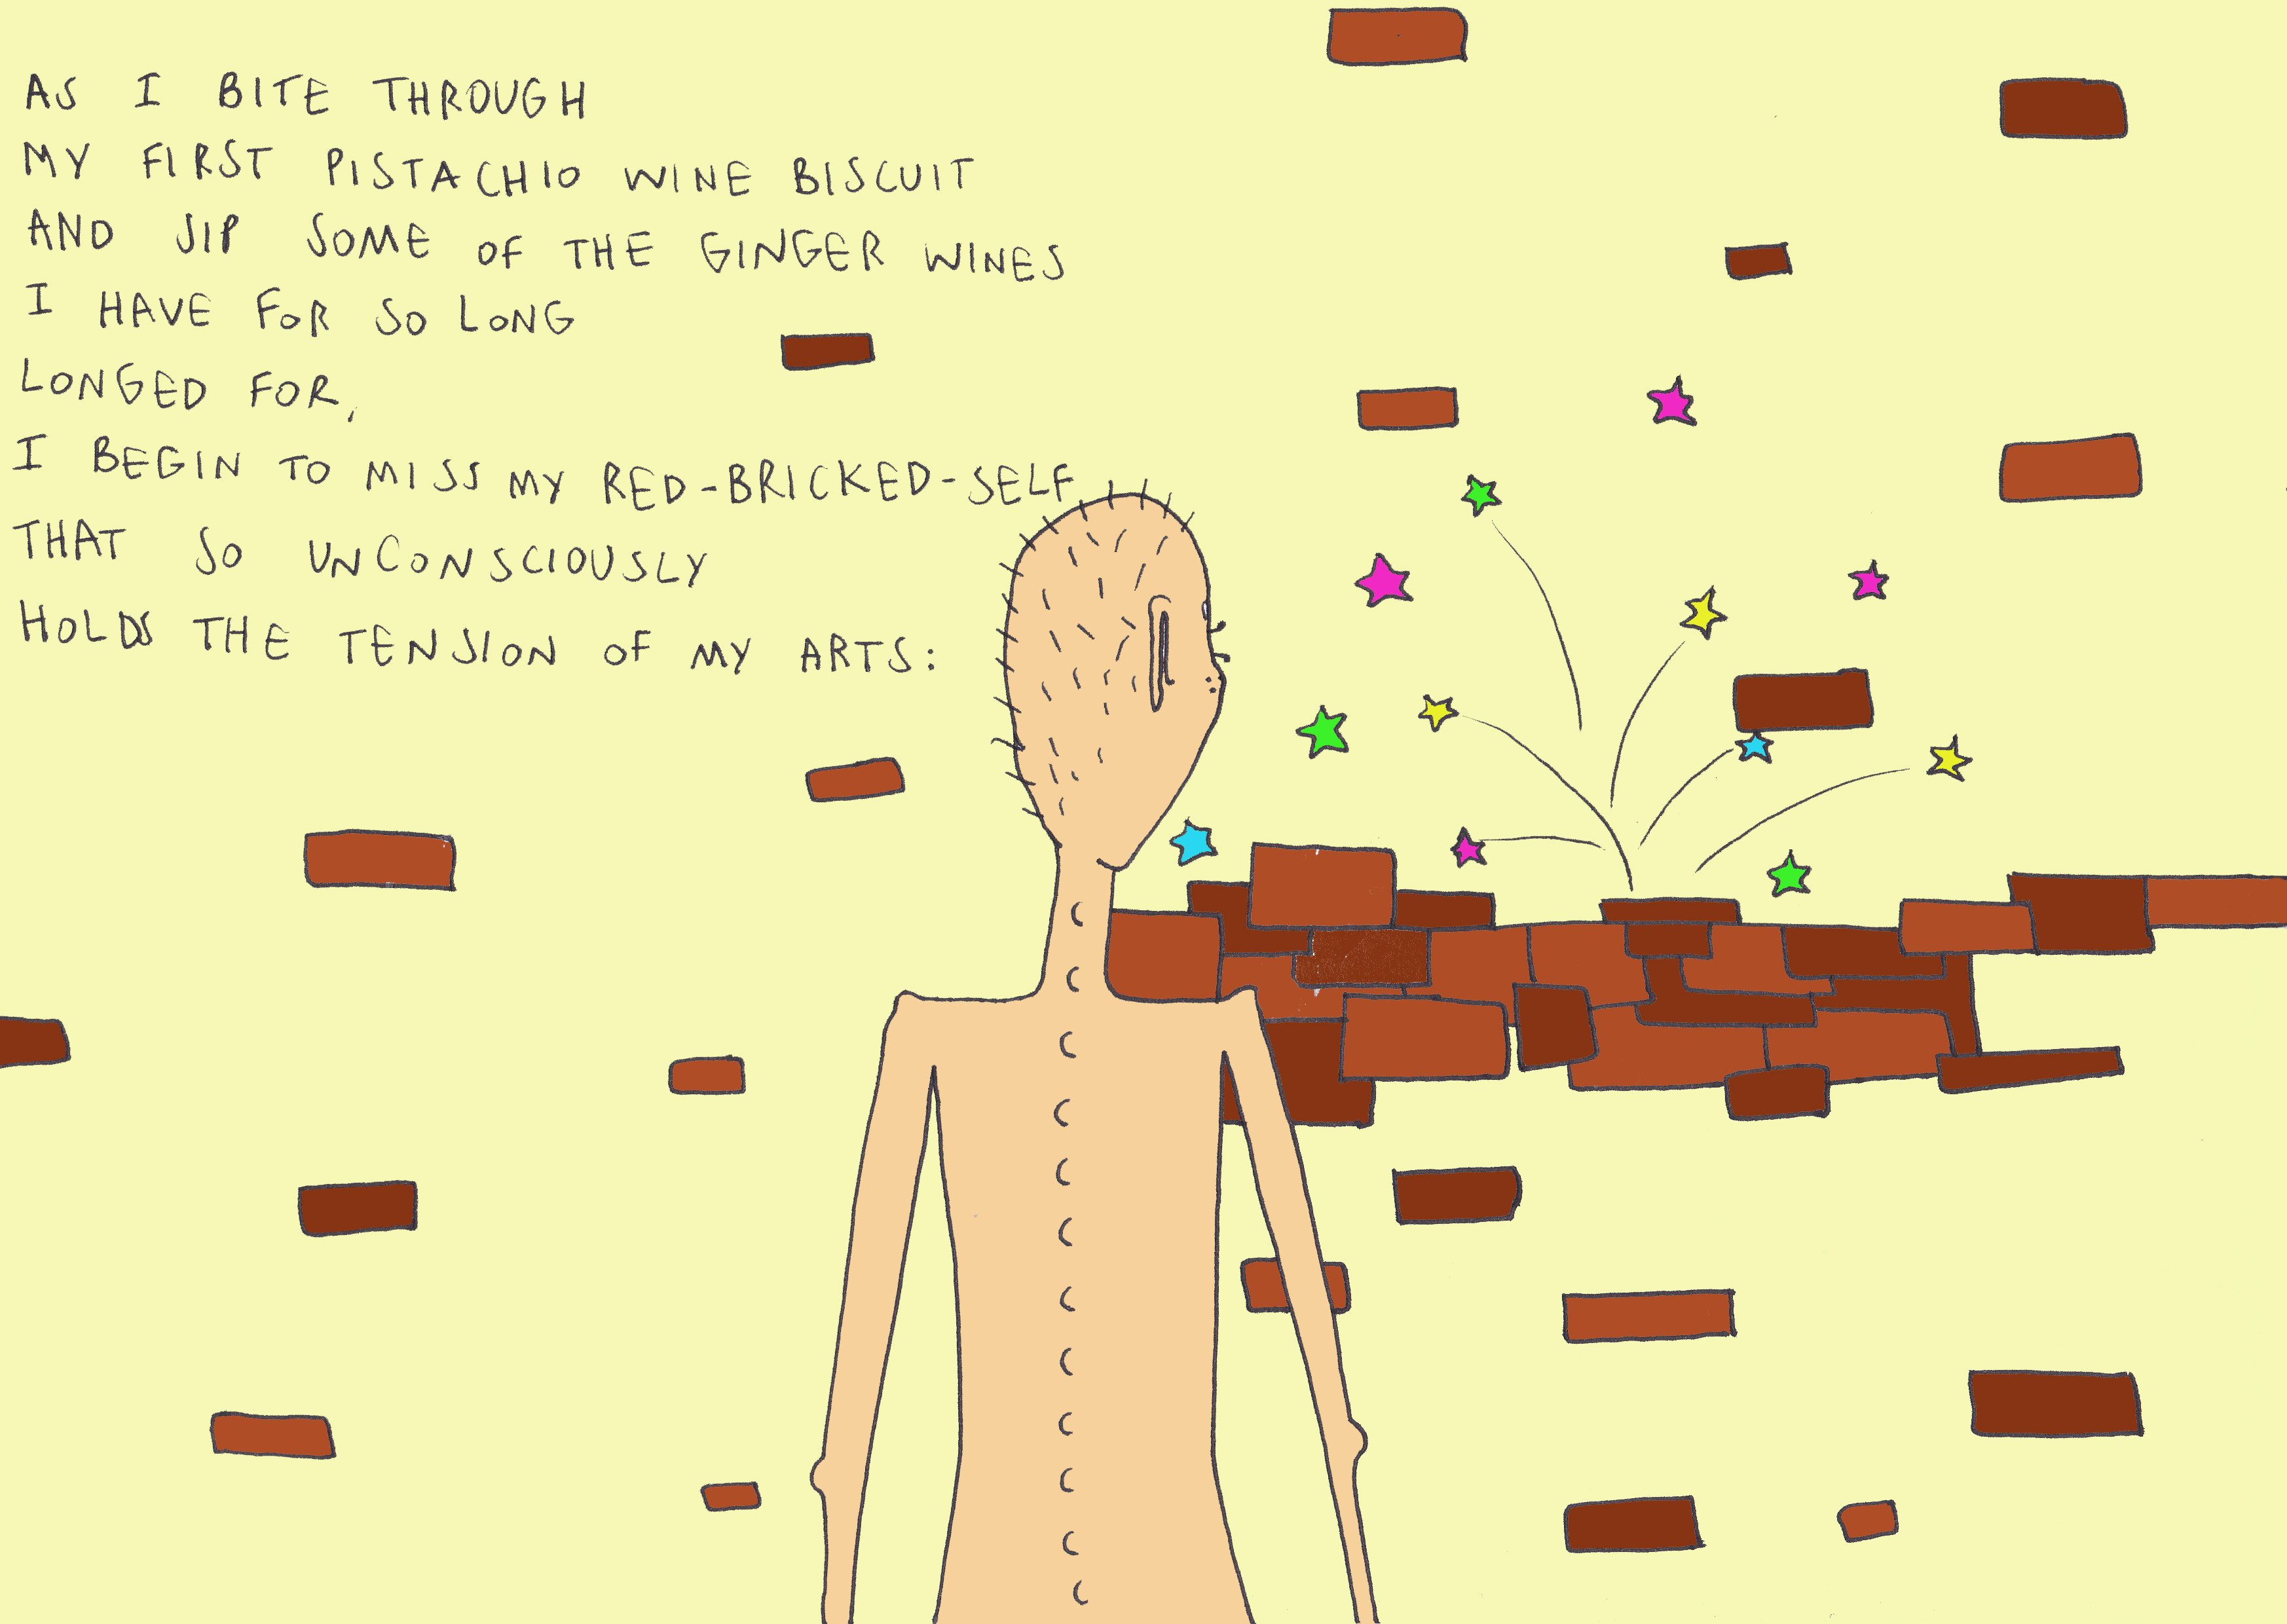 AS I BITE THROUGH
MY FIRST PISTACHIO WINE BISCUIT
AND SIP SOME OF THE GINGER WINES
I HAVE FOR SO LONG
LONGED FOR,
I BEGIN TO MISS MY RED-BRICKED-SELF
THAT SO UNCONSCIOUSLY
HOLDS THE TENSION OF MY ARTS: